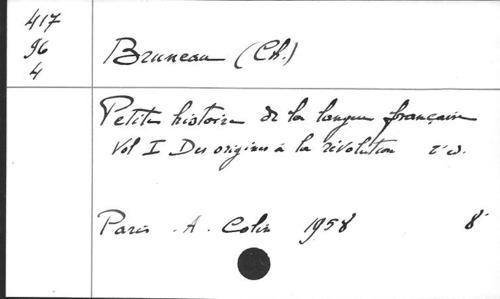 417
96
4
Bruneau (Ch.)
Petite histoire de la langue française
Vol I Des origines à la révolution
Paris A. Colin 1958 8°